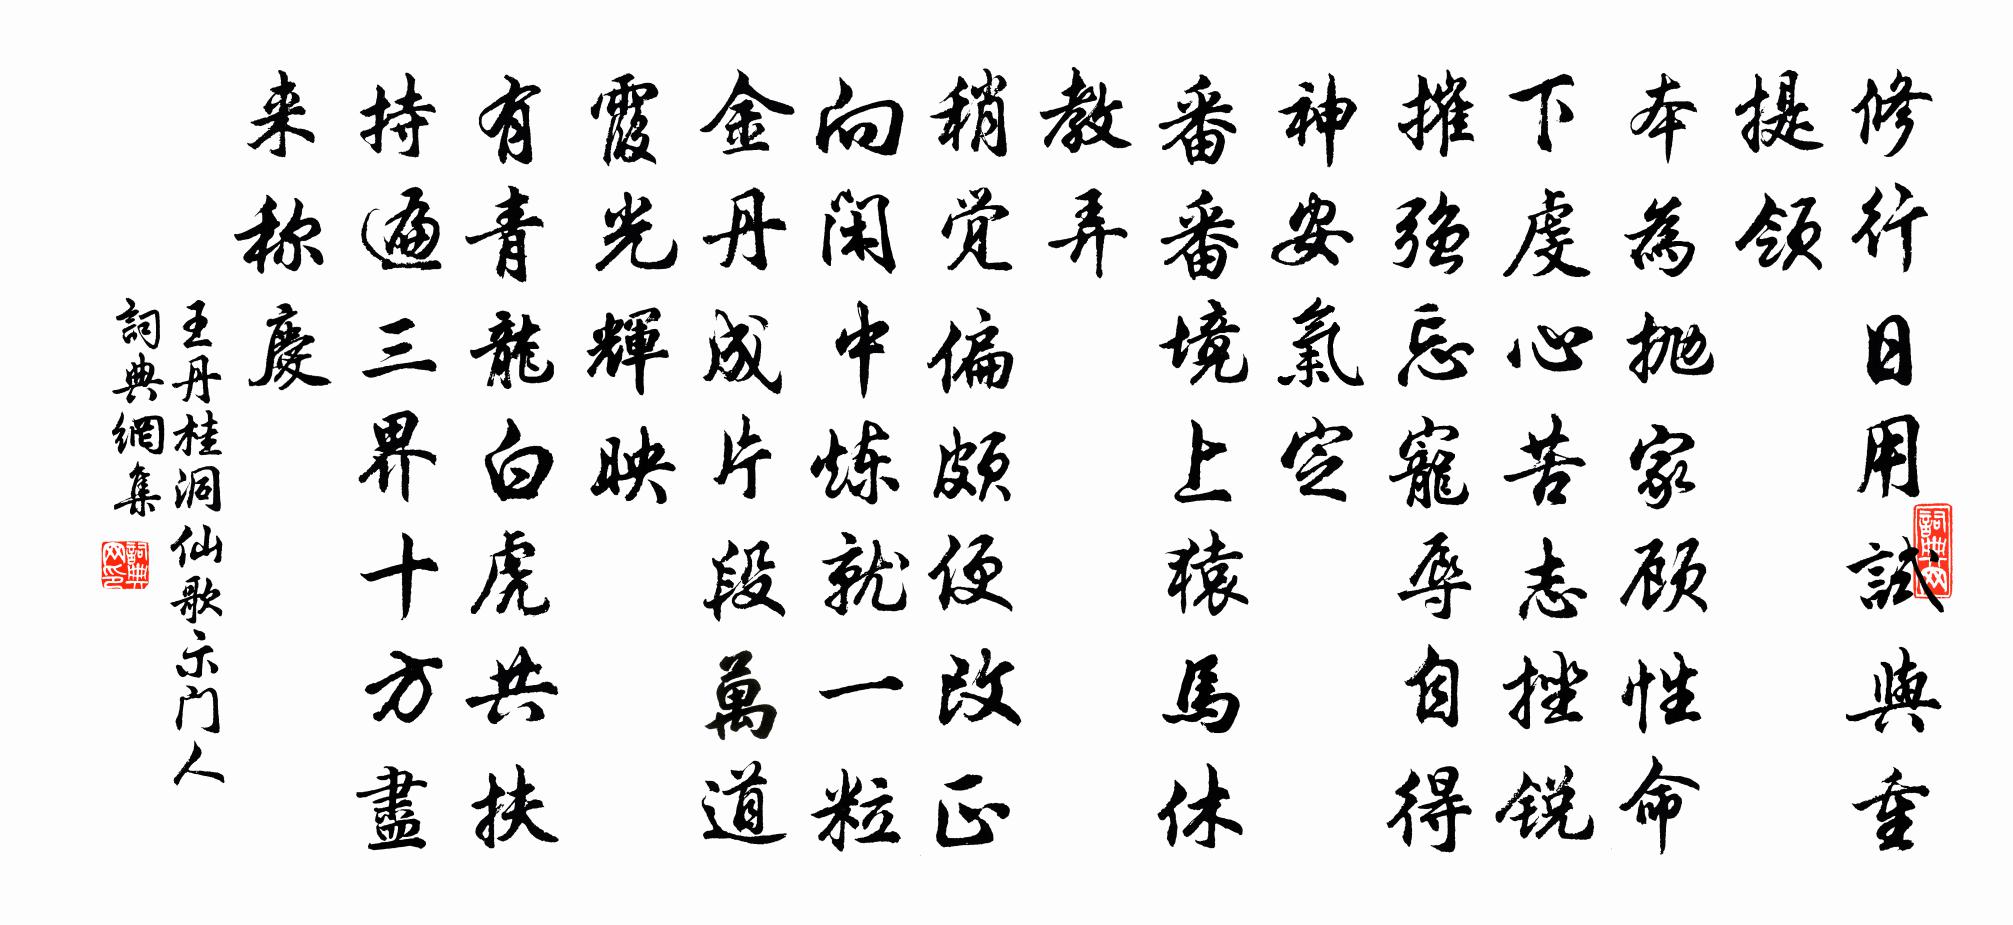 修行日用試與重
提領
本為抛家顾性命
下虔心苦志挫锐
摧強忘寵辱自得
神安氣定
番番境上猿馬休
教弄
稍觉偏颇便改正
向闲中炼就一粒
金丹成片段萬道
霞光輝映
有青龍白虎共扶
持遍三界十方盡
来称慶
王丹桂洞仙歌示门人
詞典網集
詞典网
詞典网印